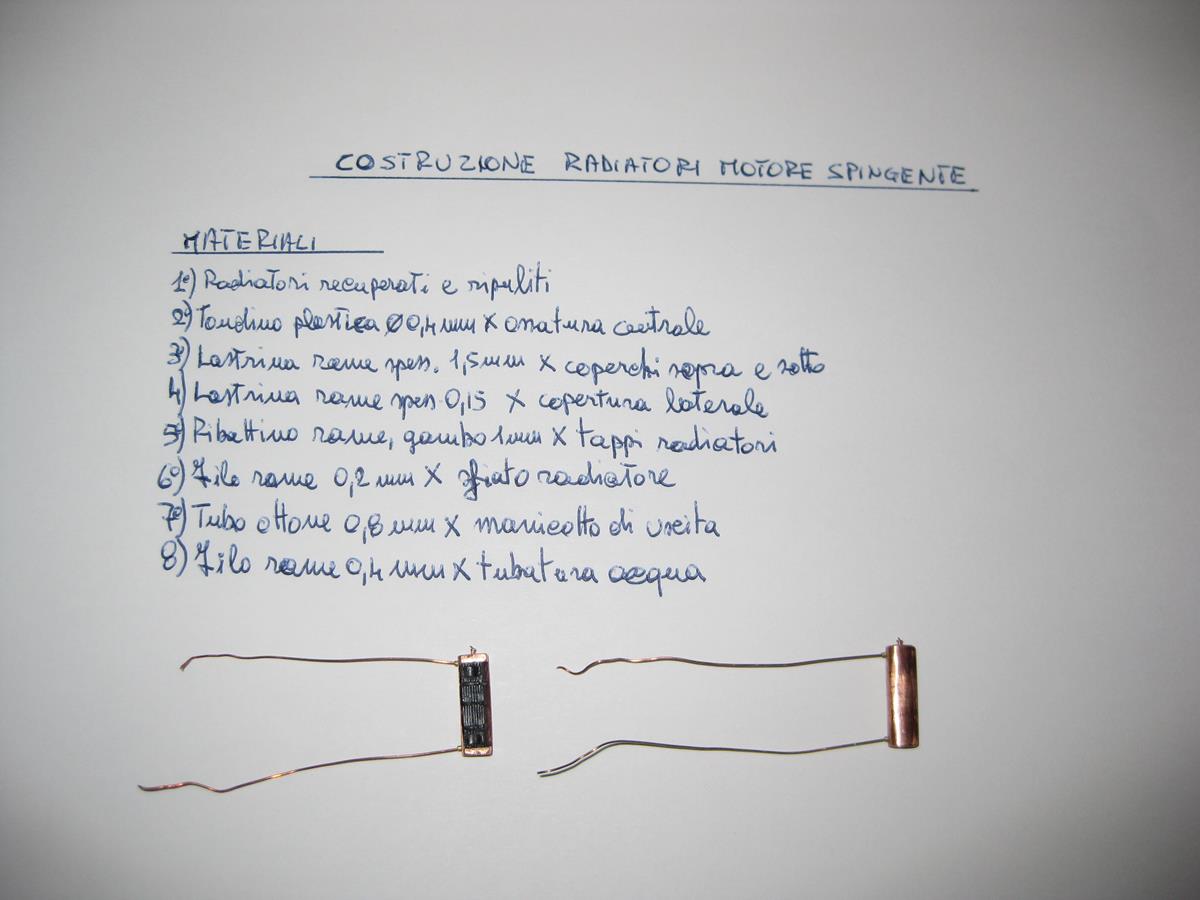 COSTRUZIONE RADIATORI MOTORE SPINGENTE
MATERIALI
1°) Radiatori recuperati e ripuliti
2°) Tondino plastica Ø 0,4 mm X ossatura centrale
3°) Lastrina rame spess. 1,5 mm X coperchi sopra e sotto
4) Lastrina rame spess 0,15 X copertura laterale
5°) Ribattino rame, gambo 1 mm X tappi radiatori
6°) Filo rame 0,2 mm X sfiato radiatore
7°) Tubo ottone 0,8 mm X manicotto di uscita
8) Filo rame 0,4 mm X tubatura acqua